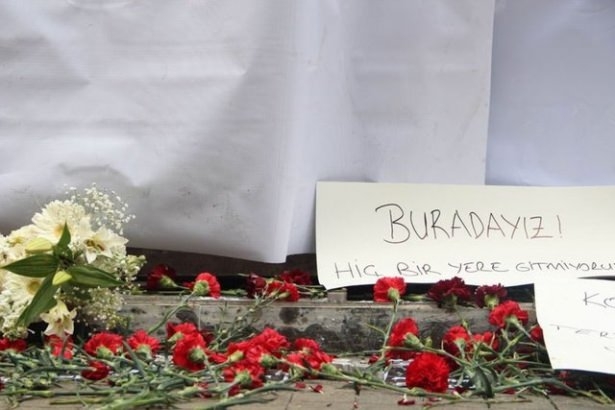 BURADAYIZ!
HİÇ BİR YERE GİTMİYORU
K
TER